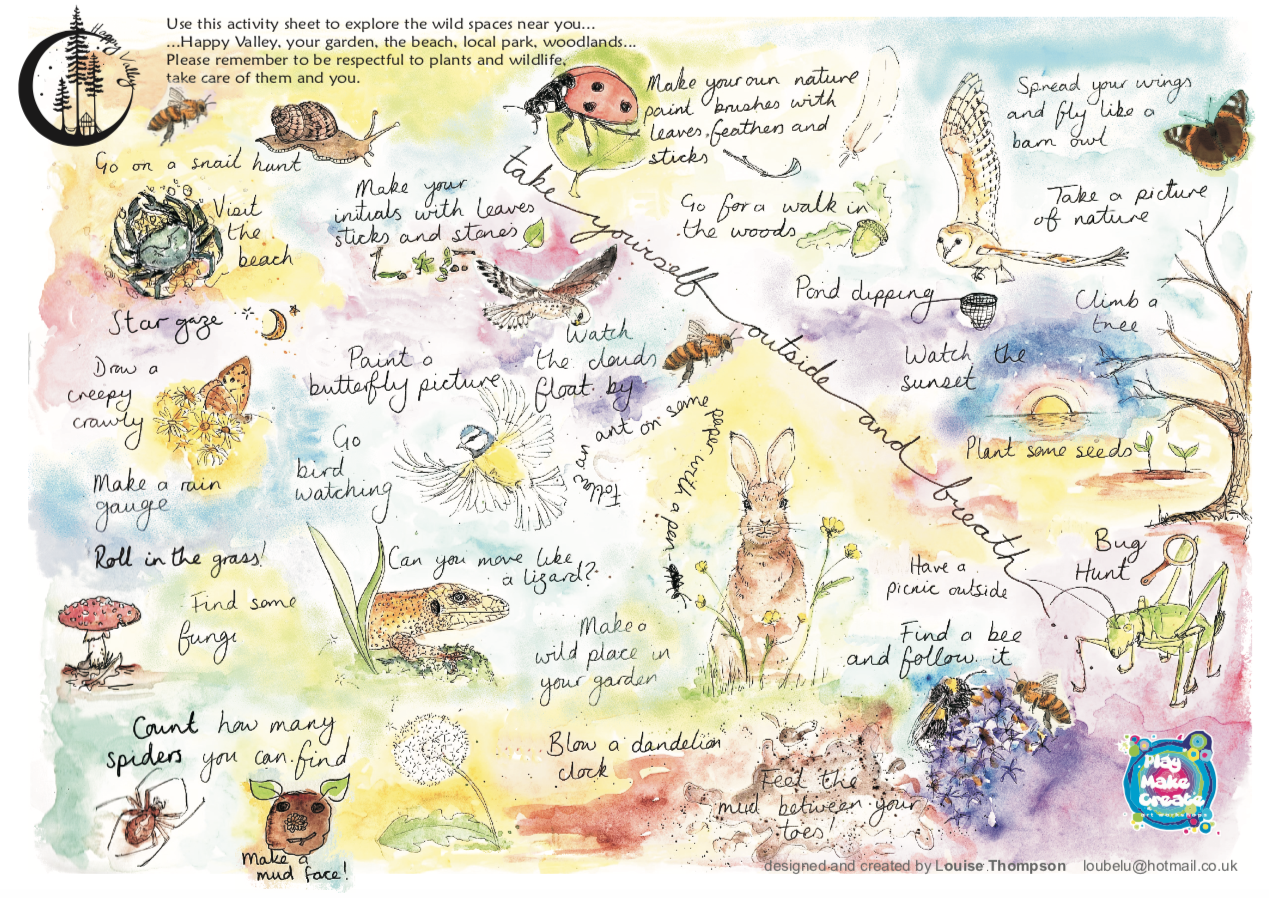 Happy Valley
Use this activity sheet to explore the wild spaces near you...
...Happy Valley, your garden, the beach, local park, woodlands...
Please remember to be respectful to plants and wildlife,
take care of them and you.
Go on a snail hunt
Make your own nature
paint brushes with
leaves, feathers and
sticks
Spread your wings
and fly like a
barn owl
Visit
the
beach
Make your
initials with leaves
sticks and stones
take yourself outside and breath
Go for a walk in
the woods
Take a picture
of nature
Star gaze
Pond dipping
Climb a
tree
Watch
the clouds
float by
Watch the
sunset
Draw a
creepy
crawly
Paint a
butterfly picture
Go
bird
watching
Follow an ant on some paper with a pen
Plant some seeds
Make a rain
gauge
Roll in the grass!
Can you move like
a lizard?
Have a
picnic outside
Bug
Hunt
Find some
fungi
Make a
wild place in
your garden
Find a bee
and follow it
Count how many
spiders you can find
Blow a dandelion
clock
Feel the
mud between your
toes!
Make a
mud face!
Play
Make
Create
art workshops
designed and created by Louise Thompson loubelu@hotmail.co.uk